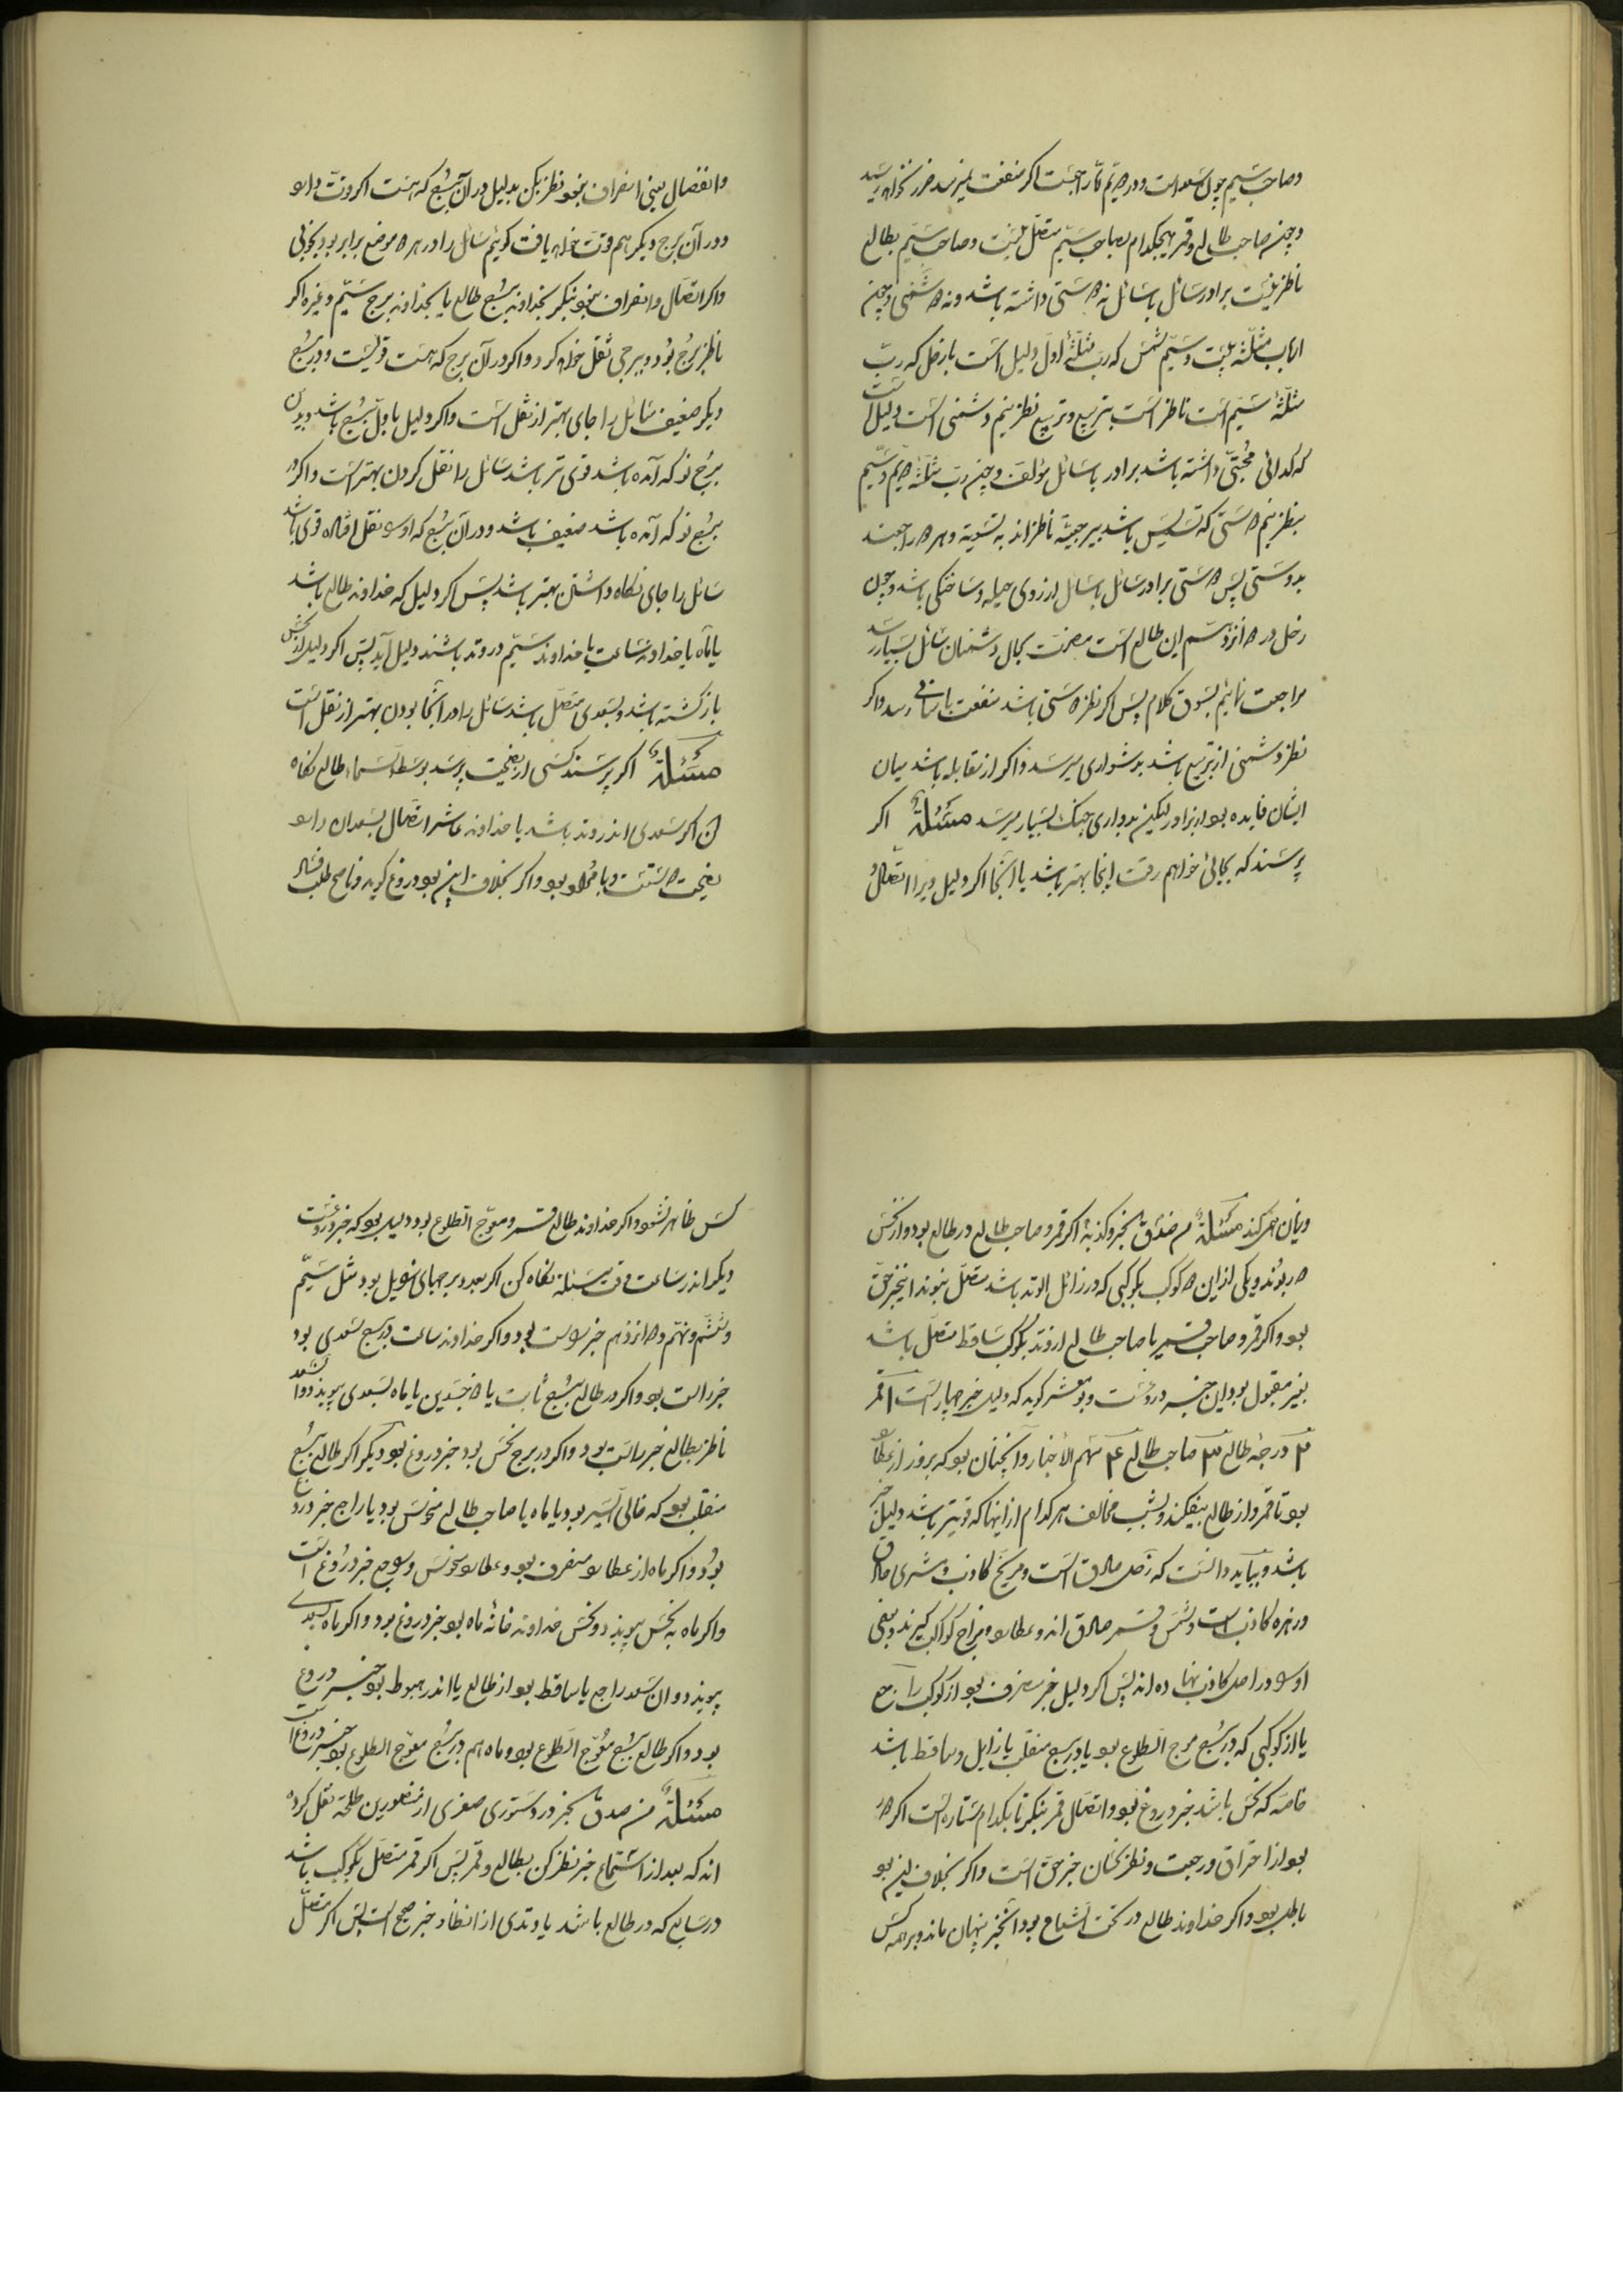 وصاحب سیم چون سعد است ودر دویم تا راجعست اگر منفعت نمیرسد ضرر نخواهد رسید
وچون صاحب طالع وقمر هیچکدام بصاحب سیم متصل نیست وصاحب سیم بطالع
ناظر نیست برادر سائل با سائل نه دوستی داشته باشد ونه دشمنی وچون
ارباب مثلثه بیت وسیم شمس که رب مثلثه اول دلیل است با زحل که رب
مثلثه سیم است ناظر است بتربیع وتربیع نظر نیم دشمنی است دلیل است
که کدائی محبتی داشته باشد برادر با سائل مؤلف وچون رب مثلثه دویم وسیم
بنظر نیم دوستی که تسدیس باشد ناظراند بتسویه وهر دو راجعند
بدوستی پس دوستی برادر سائل با سائل از روی حیله وساختگی باشد وچون
زحل در دوازدهم این طالع است مضرت بحال دشمنان سائل بسیار رسد
مراجعت نمائیم بسوق کلام پس اگر نظر دوستی باشد منفعت باسانی رسد واگر
نظر دشمنی از تربیع باشد بدشواری میرسد واگر از مقابله باشد میان
ایشان فایده بود از برادر لیکن بدواری جنگ بسیار میرسد مسئلة اگر
پرسند که بجائی خواهم رفت اینجا بهتر باشد یا آنجا اگر دلیل ویرا اتصال
وانفصال یعنی انصراف بود نظر بکن بدلیل در آن برج که هست اگر قوت دارد
ودر آن برج دیگر هم قوت خواهد یافت گوئیم سائل را در هر دو موضع برابر بود بخوبی
واگر اتصال وانصراف نبود بنگر بخداوند برج طالع یا بخداوند برج سیم وغیره اگر
ناظر برج بود وببرجی نقل خواهد کرد واگر در آن برج که هست قویست ودر برج
دیگر ضعیف سائل را جای بهتر از نقل است واگر دلیل باول برج باشد وبدان
برج نو که آمده باشد قوی تر باشد سائل را نقل کردن بهتر است واگر در
برج نو که آمده باشد ضعیف باشد ودر آن برج که ازو نقل افتاده قوی باشد
سائل را جای نگاه داشتن بهتر باشد پس اگر دلیل که خداوند طالع باشد
یا ماه یا خداوند ساعت یا خداوند سیم در وتد باشند دلیل آید پس اگر دلیل از نحس
بازگشته باشد وبسعدی متصل باشد سائل را در آنجا بودن بهتر از نقل است
مسئلة اگر پرسند کسی از نصیحت پرسد بوسط السماء طالع نگاه
کن اگر سعدی اندر وتد باشد یا خداوند عاشر اتصال بسعدان دارد
نصیحت دوستست وبا فایده بود واگر بخلاف این بود دروغ گوید وناصح طلب فساد
وزیان همی کند مسئلة من صدق الخبر وکذبه اگر قمر وصاحب طالع در طالع بود واز نحس
دور بوند ویکی از این دو کوکب بکوکبی که در زائل الوتد باشد متصل نبوند این خبر حق
بود واگر قمر وصاحب قمر یا صاحب طالع از وتد بکوکب ساقط متصل باشد
بغیر مقبول بود این خبر دروغست وابو معشر گوید که دلیل خبر چهار است ۱ قمر
۲ درجه طالع ۳ صاحب طالع ۴ سهم الاخبار وآنچنان بود که بروز از عطارد
بود تا قمر واز طالع بیفکند وبشب مخالف هر کدام از اینها که قویتر باشد دلیل خبر
باشد وبباید دانست که زحل صادق است ومریخ کاذب ومشتری صادق
وزهره کاذب است وشمس وقمر صادق اند وعطارد مزاج کواکب گیرند وبعضی
او را در اصل کاذب نهاده اند پس اگر دلیل خبر منصرف بود از کوکب راجع
یا از کوکبی که در برج معوج الطلوع بود یا در برج منقلب یا زایل وساقط باشد
خاصه که نحس باشد خبر دروغ بود واتصال قمر بنگر تا بکدام ستاره است اگر دور
بود از احتراق ورجعت ونظر نحسان خبر حق است واگر بخلاف این بود
باطل بود واگر خداوند طالع در تحت الشعاع بود آن خبر پنهان ماند وبر همه کس
کس ظاهر نشود واگر خداوند طالع قمر ومعوج الطلوع بود دلیل بود که خبر دروغست
دیگر اندر ساعت وقت مسئله نگاه کن اگر بعد وبرجهای نزول بود مثل سیم
وششم ونهم ودوازدهم خبر راست بود واگر خداوند ساعت در برج سعدی بود
خبر راست بود واگر در طالع برج ثابت یا ذو جسدین یا ماه بسعدی پیوندد وآن سعد
ناظر بطالع خبر راست بود واگر در برج نحس بود خبر دروغ بود دیگر اگر طالع برج
منقلب بود که خالی السیر بود یا ماه یا صاحب طالع منحوس بود یا راجع خبر دروغ
بود واگر ماه از عطارد منصرف بود وعطارد منحوس وراجع خبر دروغ است
واگر ماه به نحس پیوندد ونحس خداوند خانه ماه بود خبر دروغ بود واگر ماه بسعدی
پیوندد وآن سعد راجع یا ساقط بود از طالع یا اندر هبوط بود خبر دروغ
بود واگر طالع برج معوج الطلوع بود وماه هم در برج معوج الطلوع بود خبر دروغ است
مسئلة من صدق الخبر در دستوری صغری از منصور بن طلحه نقل کرده
اند که بعد از استماع خبر نظر کن بطالع وقمر پس اگر قمر متصل بکوکب باشد
در سابع که در طالع باشد یا وتدی از اوتاد خبر صحیح است پس اگر متصل